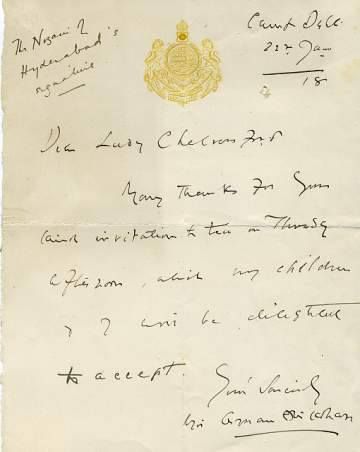 The Nizam of
Hyderabad's
signature
Camp Delhi
22nd Jan
18
Dear Lady Chelmsford
Many thanks for your
kind invitation to tea on Thursday
afternoon, which my children
& I will be delighted
to accept.
Yours Sincerely
Mir Osman Ali Khan